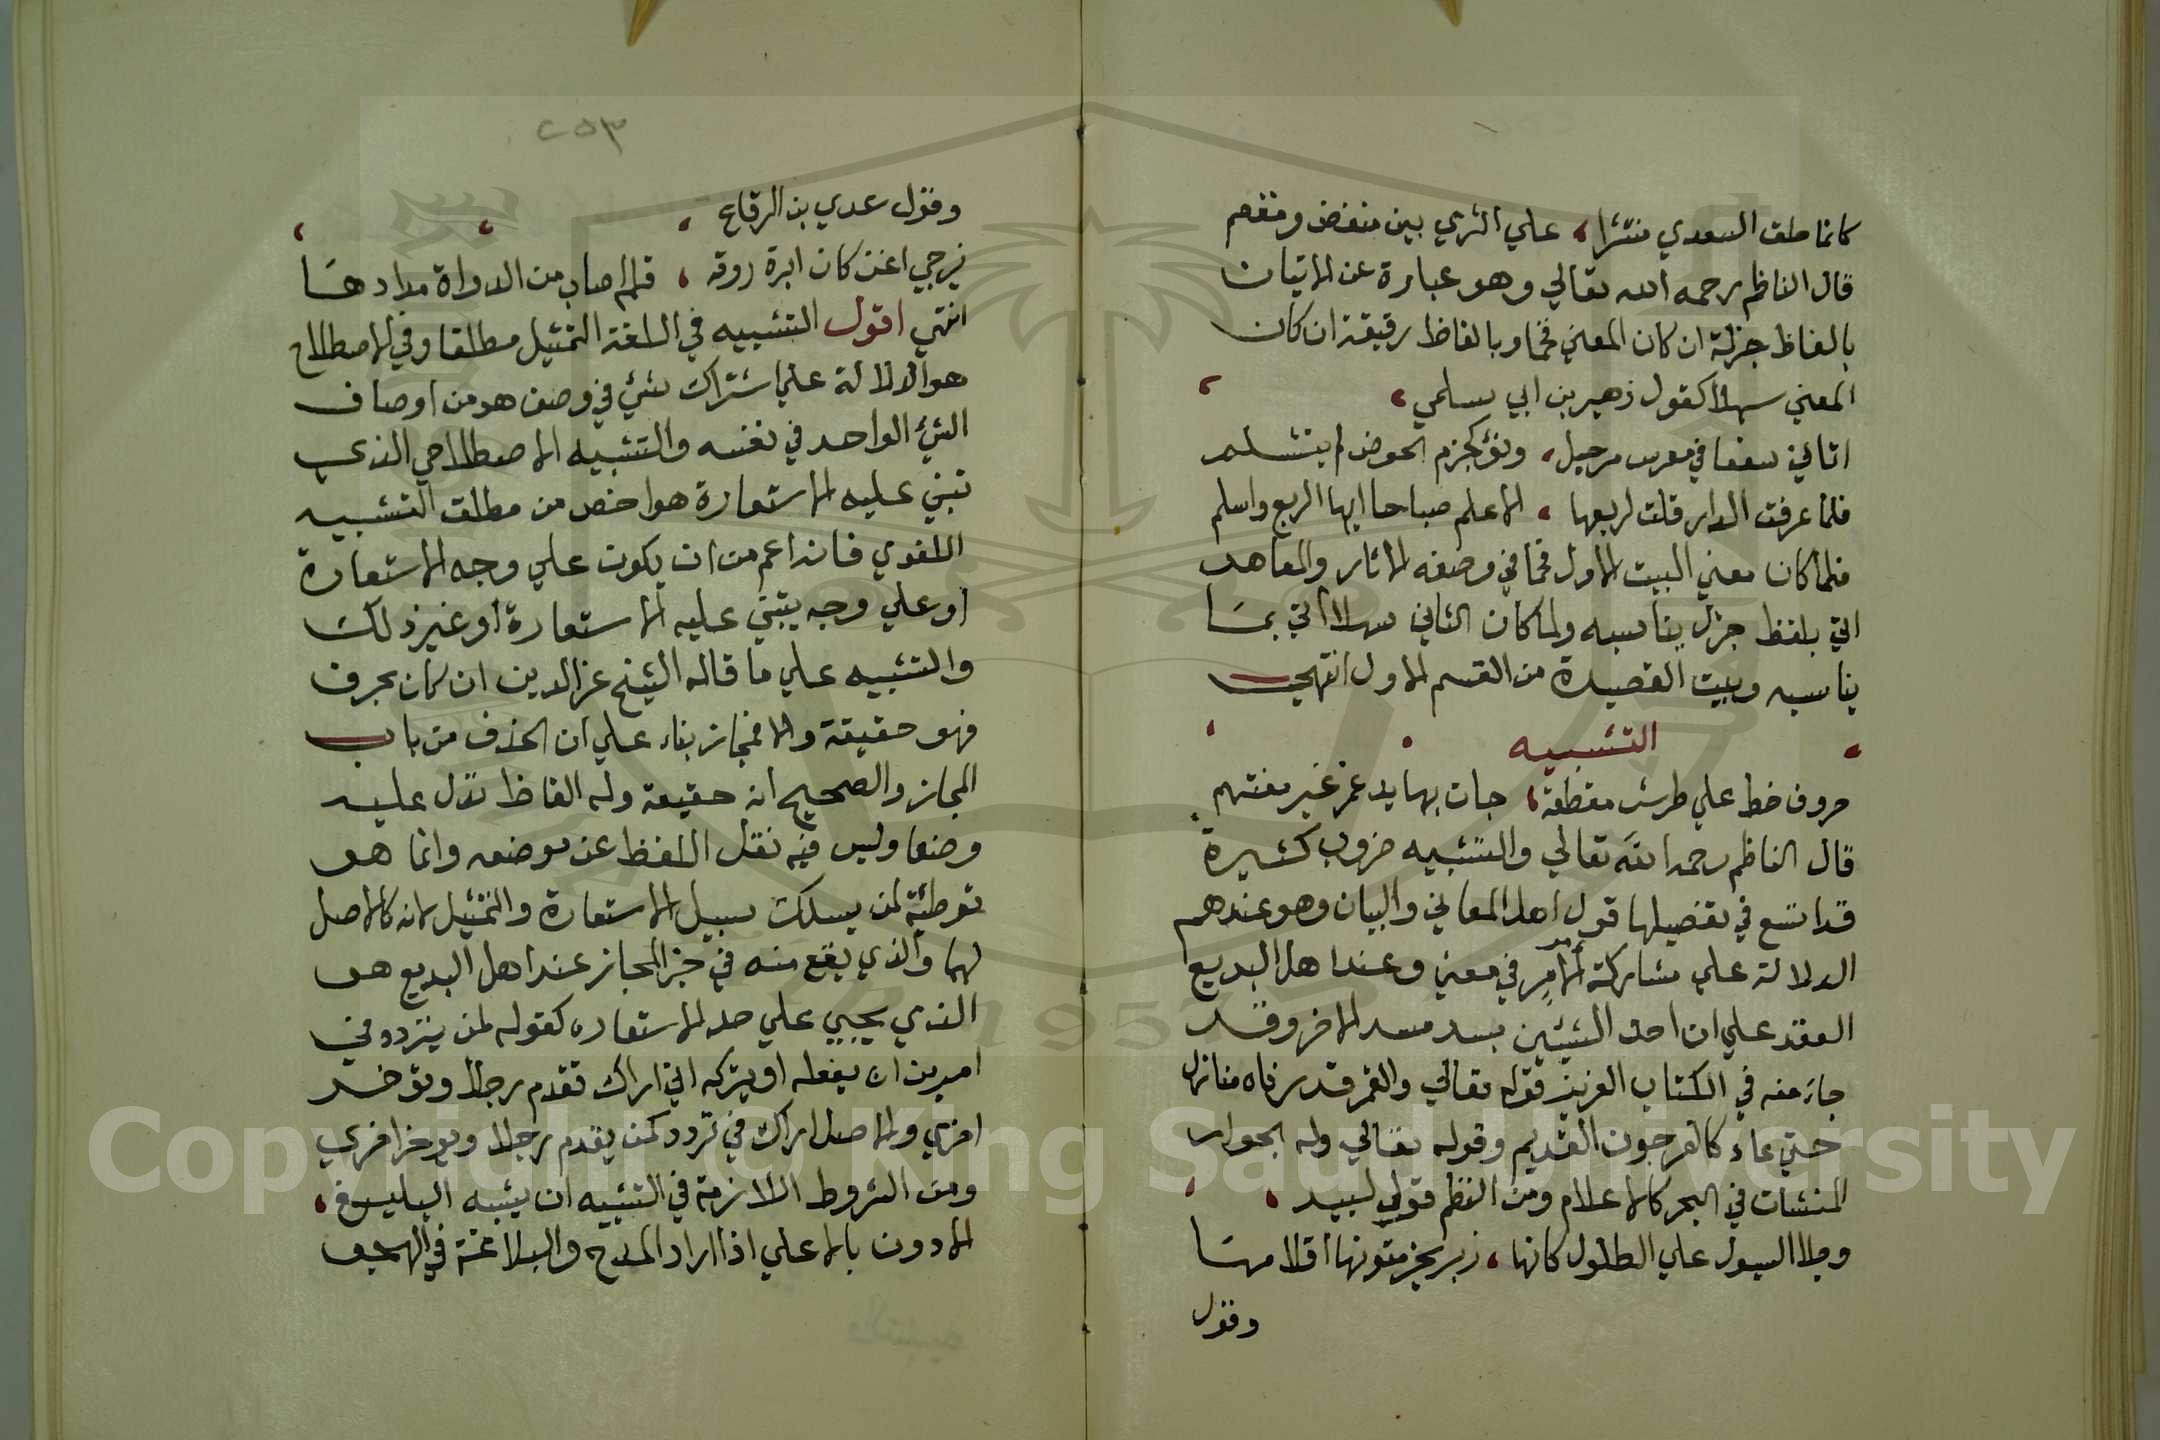 كانما طلق السعدي منتثرا، علي الثري بين منفض ومنفصم
قال الناظم رحمه الله تعالي وهو عبارة عن الاتيان
بالفاظ جزلة ان كان المعني فخما وبالفاظ رقيقة ان كان
المعني سهلا كقول زهير بن ابي سلمي،
اثافي سفعا في معرس مرجل، ونؤ كجزم الحوض لم يتثلم
فلما عرفت الدار قلت لربعها، الا عم صباحا ايها الربع واسلم
فلما كان معني البيت الاول فخما في وصفه الاثار والمعاهد
اتي بلفظ جزل يناسبه ولما كان الثاني سهلا أتي بما
يناسبه وبيت القصيدة من القسم الاول انتهي
التشبيه
حروف خط علي طرس مقطعة، جات بها يد غمر غير مفتهم
قال الناظم رحمه الله تعالي والتشبيه ضروب كثيرة
قد اتسع في تفصيلها قول اهل المعاني والبيان وهو عندهم
الدلالة علي مشاركة أمر لامر في معني وعند اهل البديع
العقد علي ان احد الشيئين يسد مسد الاخر وقد
جاء منه في الكتاب العزيز قوله تعالي والقمر قدرناه منازل
حتي عاد كالعرجون القديم وقوله تعالي وله الجوار
المنشات في البحر كالاعلام ومن النظم قول لبيد،
وجلا السيول علي الطلول كانها، زبر تجز متونها أقلامها
وقول
٢٥٣
وقول عدي بن الرقاع
يزجي اغن كان ابرة روقه، قلم اصاب من الدواة مدادها
انتهي اقول التشبيه في اللغة التمثيل مطلقا وفي الاصطلاح
هو الدلالة علي اشتراك شئي في وصف هو من اوصاف
الشئ الواحد في نفسه والتشبيه الاصطلاحي الذي
تبني عليه الاستعارة هو اخص من مطلق التشبيه
اللغوي فانه اعم من ان يكون علي وجه الاستعارة
أو علي وجه يتبني عليه الاستعارة أو غير ذلك
والتشبيه علي ما قاله الشيخ عز الدين ان كان بحرف
فهو حقيقة والا فمجاز بناء علي ان الحذف من باب
المجاز والصحيح انه حقيقة وله الفاظ تدل عليه
وضعا وليس فيه نقل اللفظ عن موضعه وانما هو
توطئة لمن يسلك سبيل الاستعارة والتمثيل لانه كالاصل
لهما والذي يقع منه في حيز المجاز عند اهل البديع هو
الذي يجيي علي حد الاستعاره كقوله لمن يتردد في
امرين ان يفعله او يتركه اني اراك تقدم رجلا وتوخر
اخري والاصل اراك في تردد كمن يقدم رجلا ويوخر اخري
ومن الشروط اللازمة في التشبيه ان يشبه البليغ،
الادون بالاعلي اذا اراد المدح والبلاغة في الهجو
Copyright © King Saud University
1957